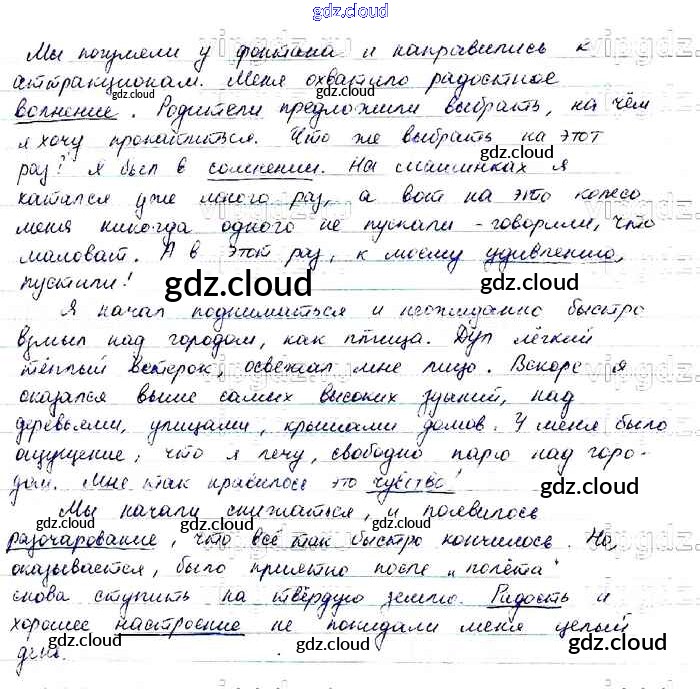 gdz.cloud
Мы погуляли у фонтана и направились к
аттракционам. Меня охватило радостное
волнение. Родители предложили выбрать, на чём
я хочу прокатиться. Что же выбрать на этот
раз? Я был в сомнении. На машинках я
катался уже много раз, а вот на это колесо
меня никогда одного не пускали - говорили, что
маловат. А в этот раз, к моему удивлению,
пустили!
Я начал подниматься и неожиданно быстро
взмыл над городом, как птица. Дул лёгкий
тёплый ветерок, освежал мне лицо. Вскоре я
оказался выше самых высоких зданий, над
деревьями, улицами, крышами домов. У меня было
ощущение, что я лечу, свободно парю над горо-
дом. Мне так нравилось это чувство!
Мы начали снижаться, и появилось
разочарование, что всё так быстро кончилось. Но,
оказывается, было приятно после „полёта"
снова ступить на твёрдую землю. Радость и
хорошее настроение не покидали меня целый
день.